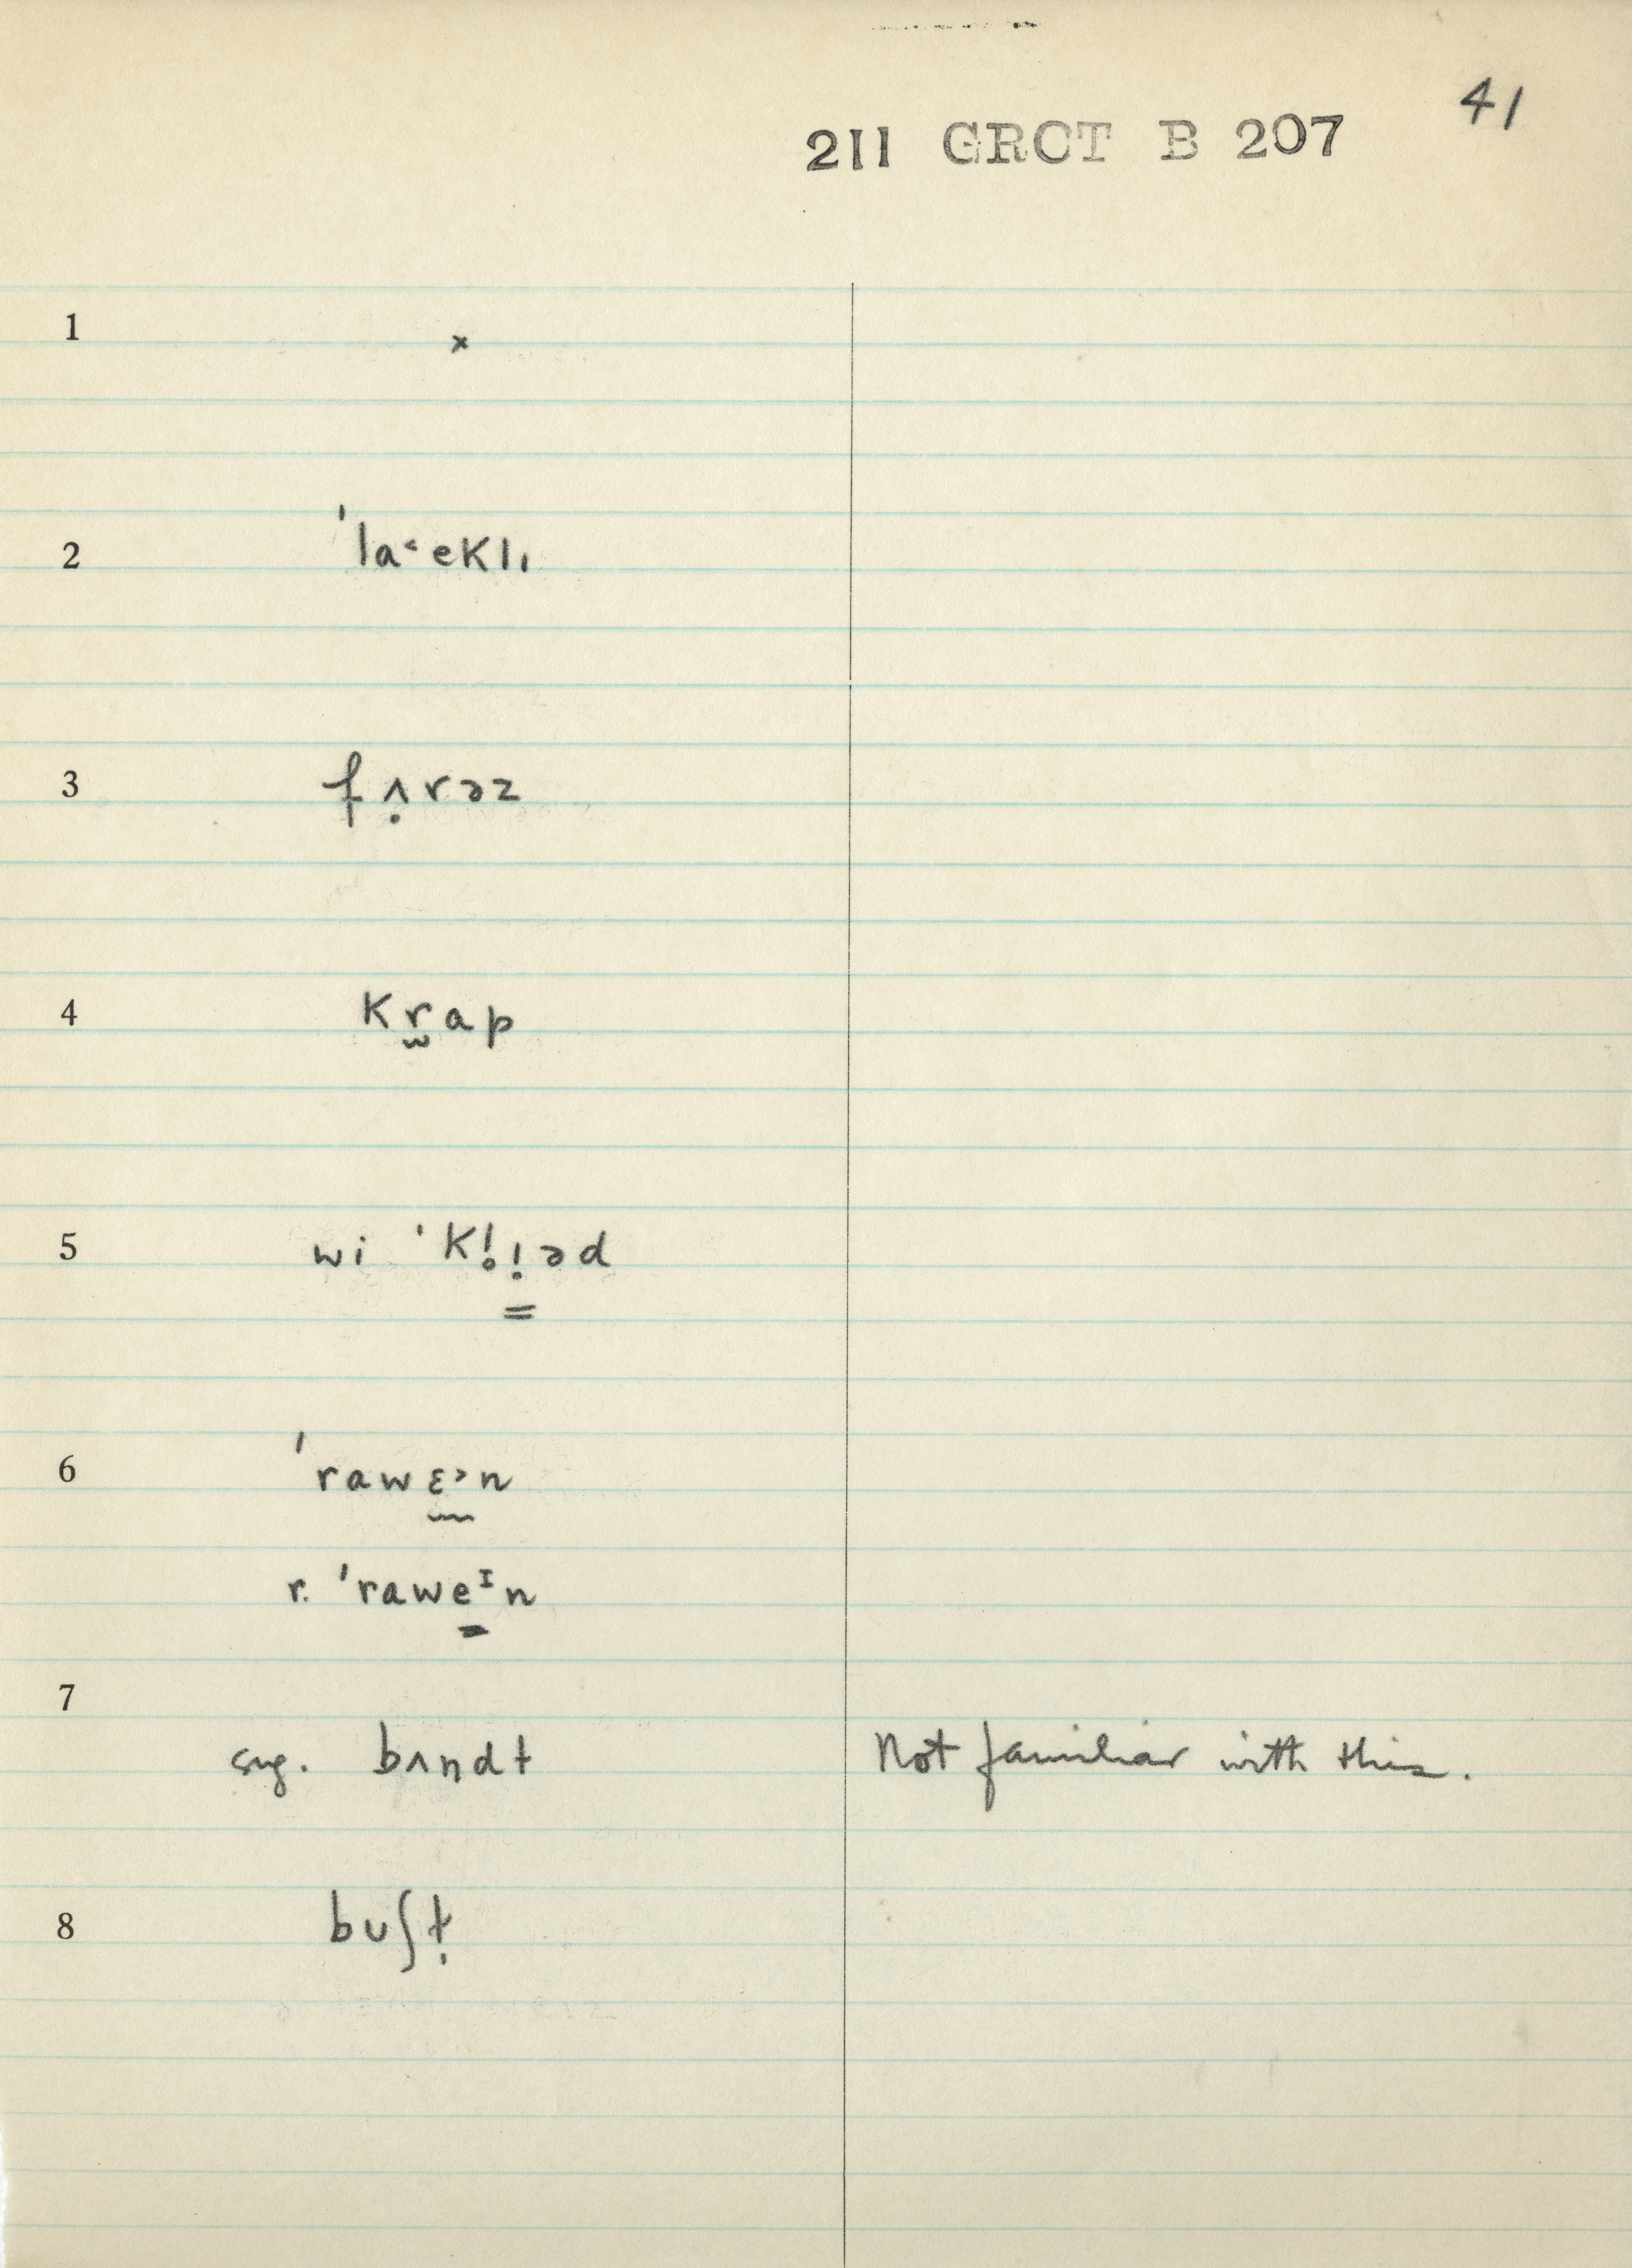 41
211 GROT B 207
1 ×
2 ˈla˂eklı
3 fʌ̣rəz
4 kr̬ap
5 wi ˈkl̥ı̣əd
6 ˈrawɛ˃n
r. ˈraweɪn
7
sug. bʌndt Not familiar with this.
8 buʃṭ